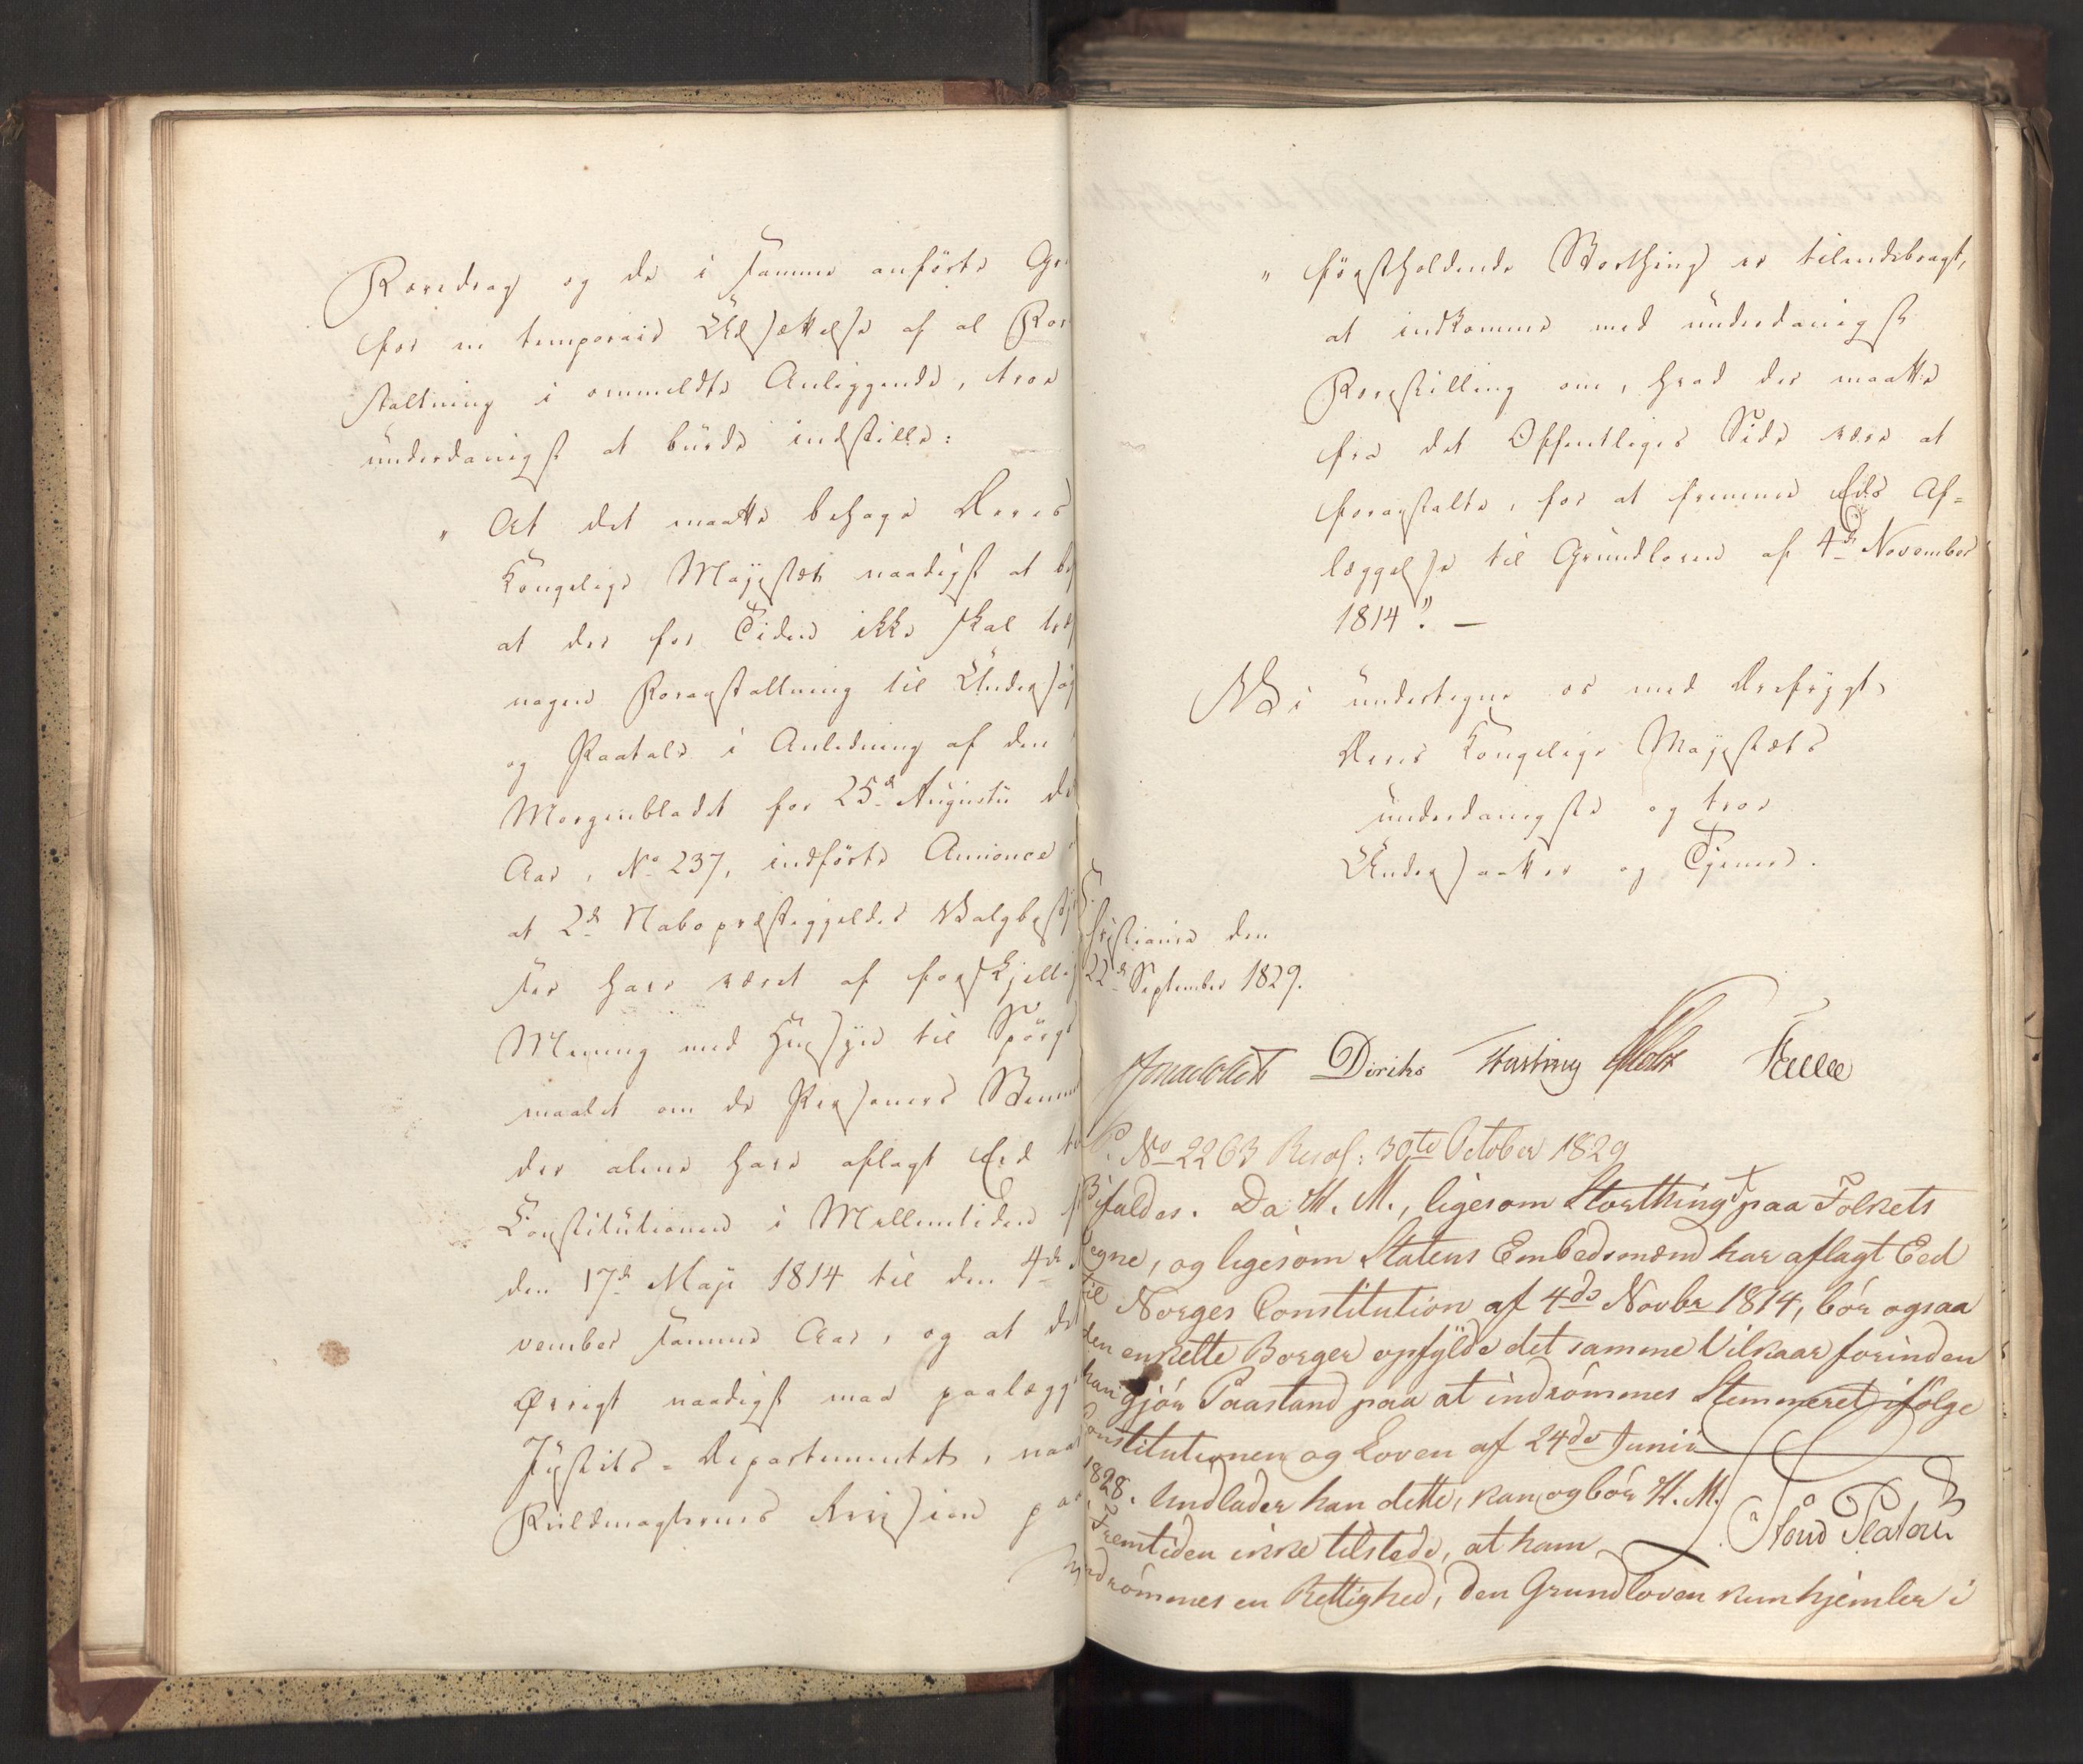 Foredrag og de i samme anførte Gr
for en temporair Udsættelse af al For
staltning i ommeldte Anliggende, troe
underdanigst at burde indstille:
" At det maatte behage Deres
Kongelige Majestæt naadigst at be
at der for Tiden ikke skal
nogen Foranstaltning til Undersøg
og Paatale i Anledning af den
Morgenbladet for 25de Augusti d
Aar, No 237, indførte Annonce
at 2de Nabopræstegjeldes Valgbesty
rer have været af forskjelli
Mening med Hensyn til Spørgs
maalet om de Personers Stemme
der alene have aflagt Eed
Constitutionen i Mellemtiden f
den 17de Maji 1814 til den 4de
vember samme Aar, og at d
Øvrigt naadigst maa paalægg
Justits-Departementet, naar
Fuldmagternes Revision paa
" førstholdende Storthing er tilendebragt,
at indkomme med underdanigst
Forestilling om, hvad der maatte
fra det Offentliges Side være at
foranstalte, for at fremme Eds Af=
læggelse til Grundloven af 4de November
1814". —
Vi undertegne os med Ærefrygt,
Deres Kongelige Majestæts
underdanigste og troe
Undersaatter og Tjenere.
Christiania den
22de September 1829.
Diriks Fasting Holst
P. No 2263 Resol: 30te October 1829
Bifaldes. Da H. M., ligesom Storthinget paa Folkets
Vegne, og ligesom Statens Embedsmænd har aflagt Eed
til Norges Constitution af 4de Novbr 1814, bör ogsaa
den enkelte Borger opfylde det samme Vilkaar forinden
han gjör Paastand paa at indrömmes Stemmeret ifölge
Constitutionen og Loven af 24de Junii
1828. Undlader han dette, kan og bör H. M.
i Fremtiden ikke tilstede, at ham
indrömmes en Rettighed, den Grundloven kun hjemler i